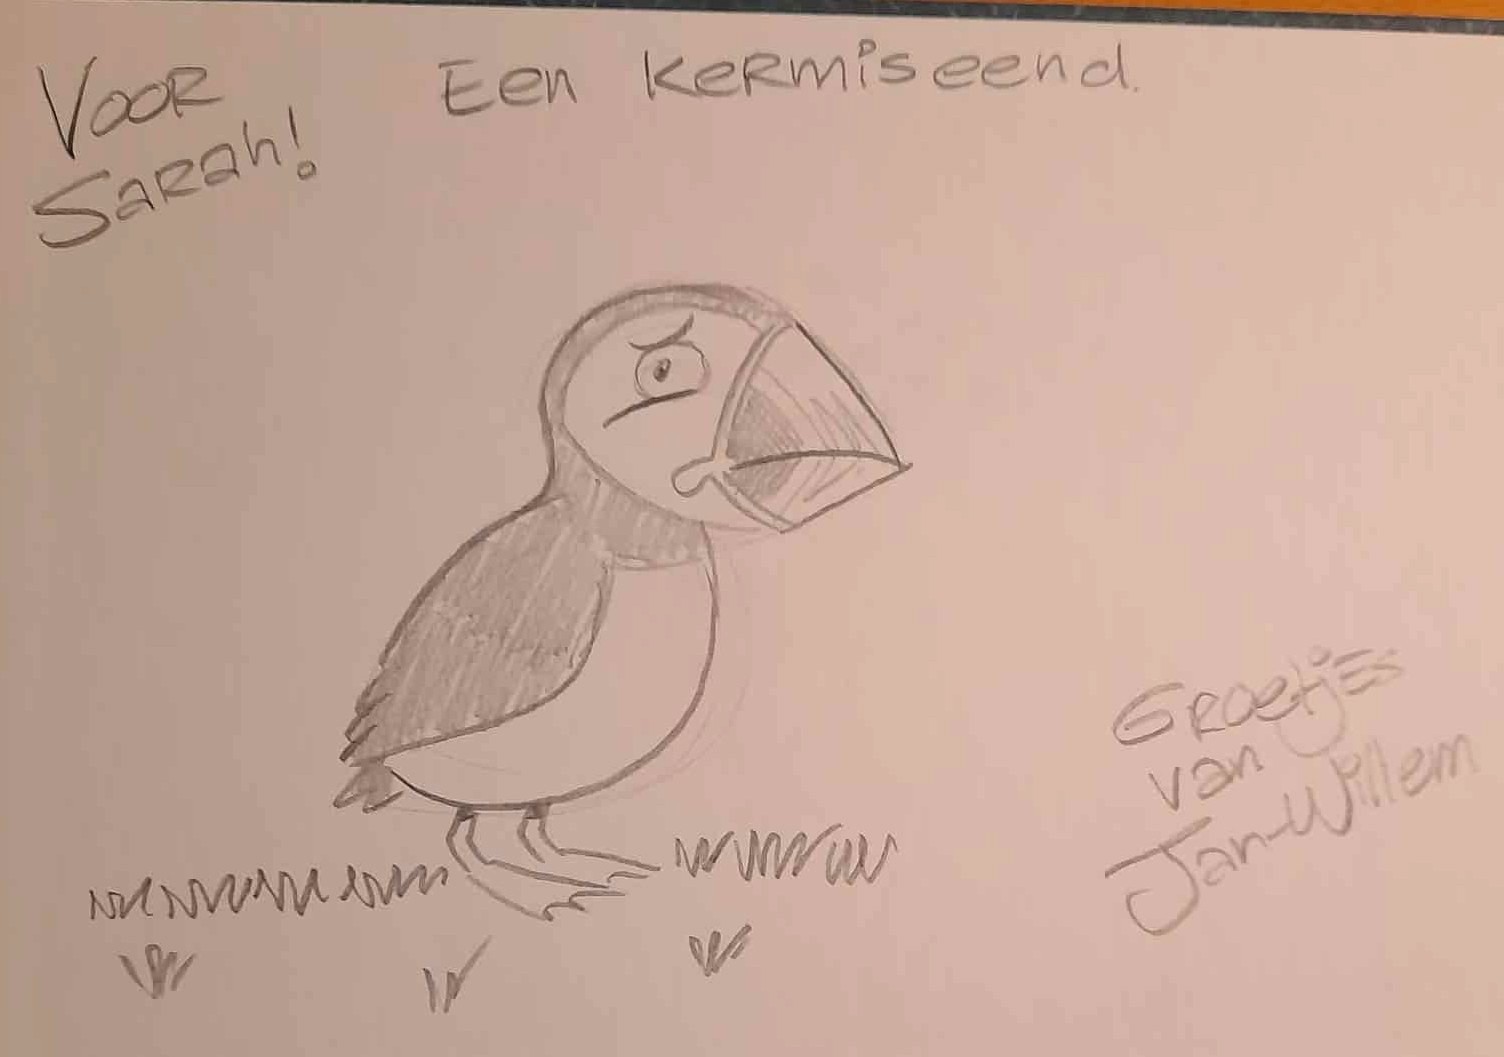 Voor
Sarah!
Een kermiseend.
Groetjes
van
Jan-Willem